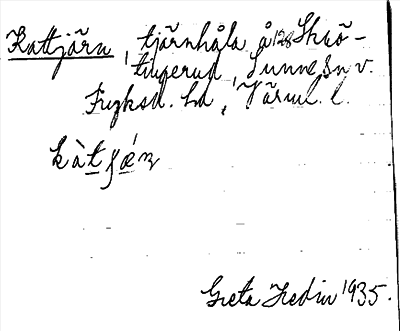 Kattjärn, tjärnhåla å 128 Skrö-
tjuperud, Sunne Sn v.
Fryksd. hd, Värml. l.
kàt̲ʃǽn
Greta Hedin 1935.